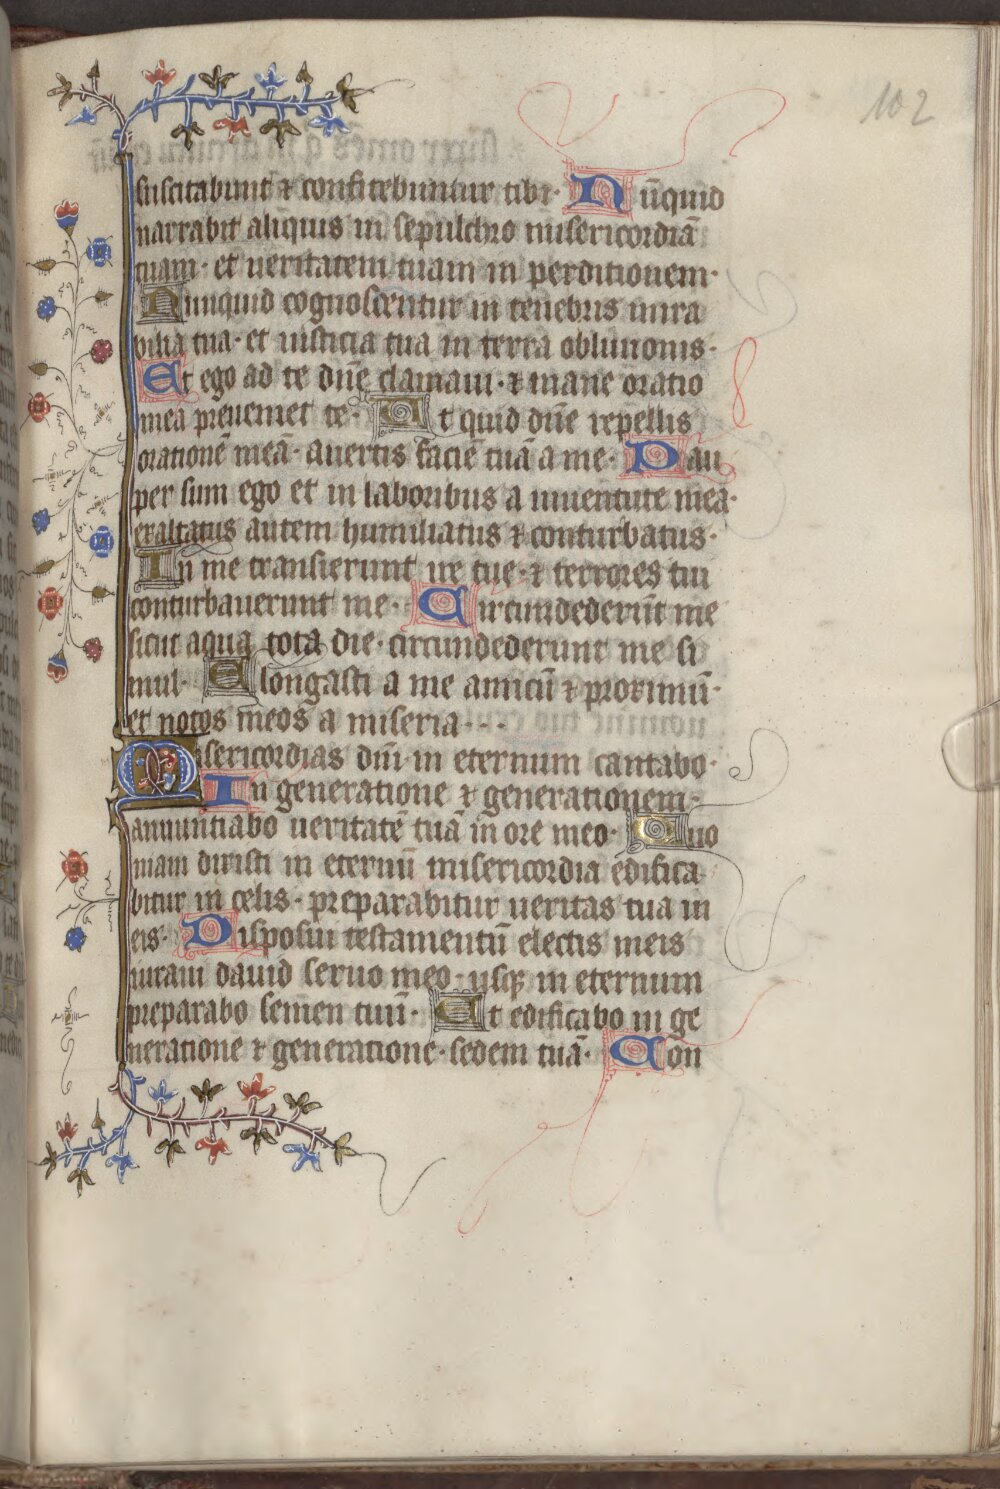 102
suscitabunt ⁊ confitebuntur tibi· Nūquid
narrabit aliquis in sepulchro misericordiā
tuam· et ueritatem tuam in perditionem·
Nunquid cognoscentur in tenebris mira
bilia tua· et iusticia tua in terra obliuionis·
Et ego ad te dūe clamaui· ⁊ mane oratio
mea preueniet te· Ut quid dūe repellis
orationē meā· auertis faciē tuā a me· Pau
per sum ego et in laboribus a iuuentute mea·
exaltatus autem humiliatus ⁊ conturbatus·
In me transierunt ire tue· ⁊ terrores tui
conturbauerunt me· Circumdederūt me
sicut aqua tota die· circumdederunt me si
mul· Elongasti a me amicū ⁊ proximū·
et notos meos a miseria···
Misericordias dn̄i in eternum cantabo·
In generatione ⁊ generationem·
annuntiabo ueritatē tuā in ore meo· Quo
niam dixisti in eternū misericordia edifica
bitur in celis· preparabitur ueritas tua in
eis· Disposui testamentū electis meis
iuraui dauid seruo meo· usqꝫ in eternum
preparabo semen tuū· Et edificabo in ge
neratione ⁊ generationē· sedem tuā· Con